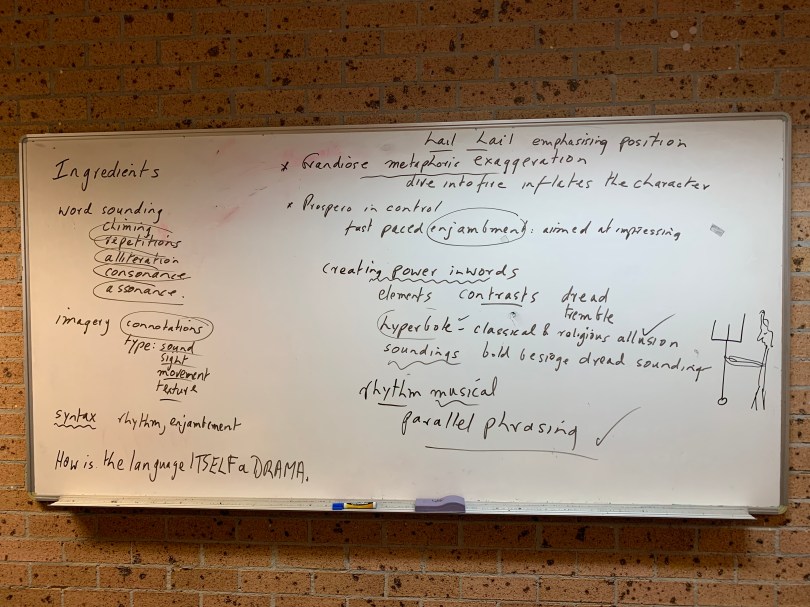 Ingredients
word sounding
chiming
repetitions
alliteration
consonance
assonance.
imagery connotations
type: sound
sight
movement
texture
syntax rhythm, enjambment
How is the language ITSELF a DRAMA.
hail hail emphasising position
x Grandiose metaphoric exaggeration
dive into fire inflates the character
x Prospero in control
fast paced enjambment: aimed at impressing
Creating power in words
elements contrasts dread
tremble
hyperbole - classical & religious allusion ✓
soundings bold besiege dread sounding
rhythm musical
parallel phrasing ✓